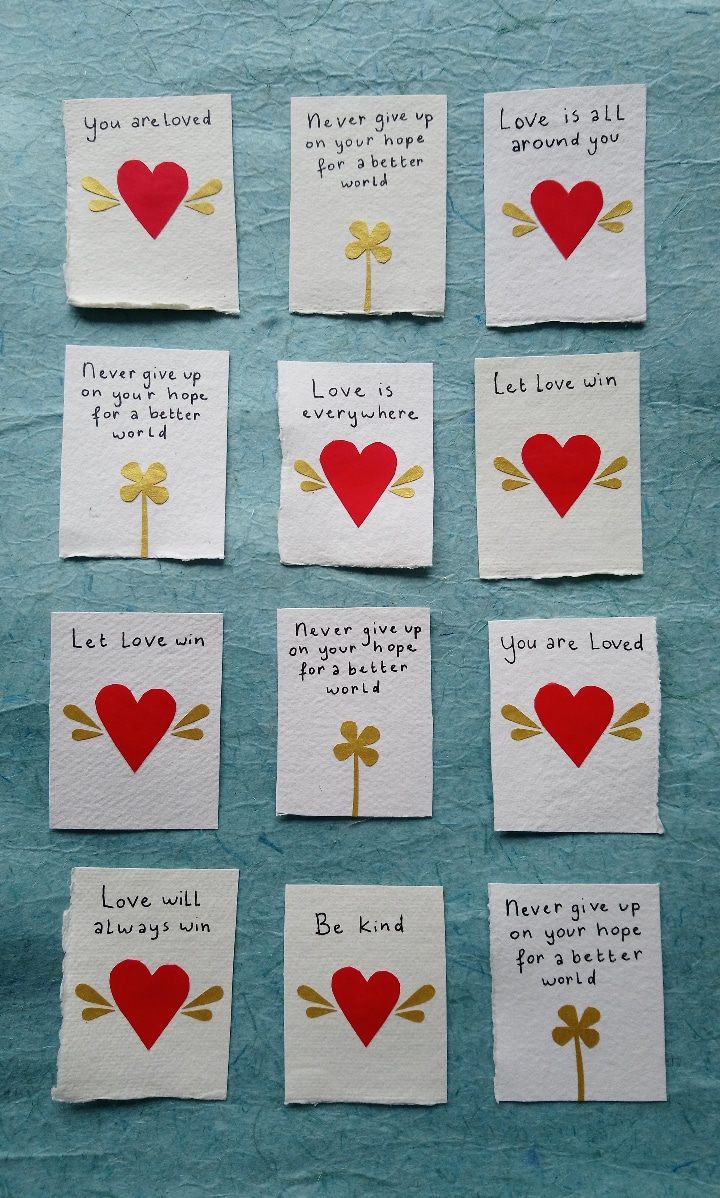 You are loved
Never give up
on your hope
for a better
world
Love is all
around you
Never give up
on your hope
for a better
world
Love is
everywhere
Let love win
Let Love win
Never give up
on your hope
for a better
world
You are Loved
Love will
always win
Be kind
Never give up
on your hope
for a better
world